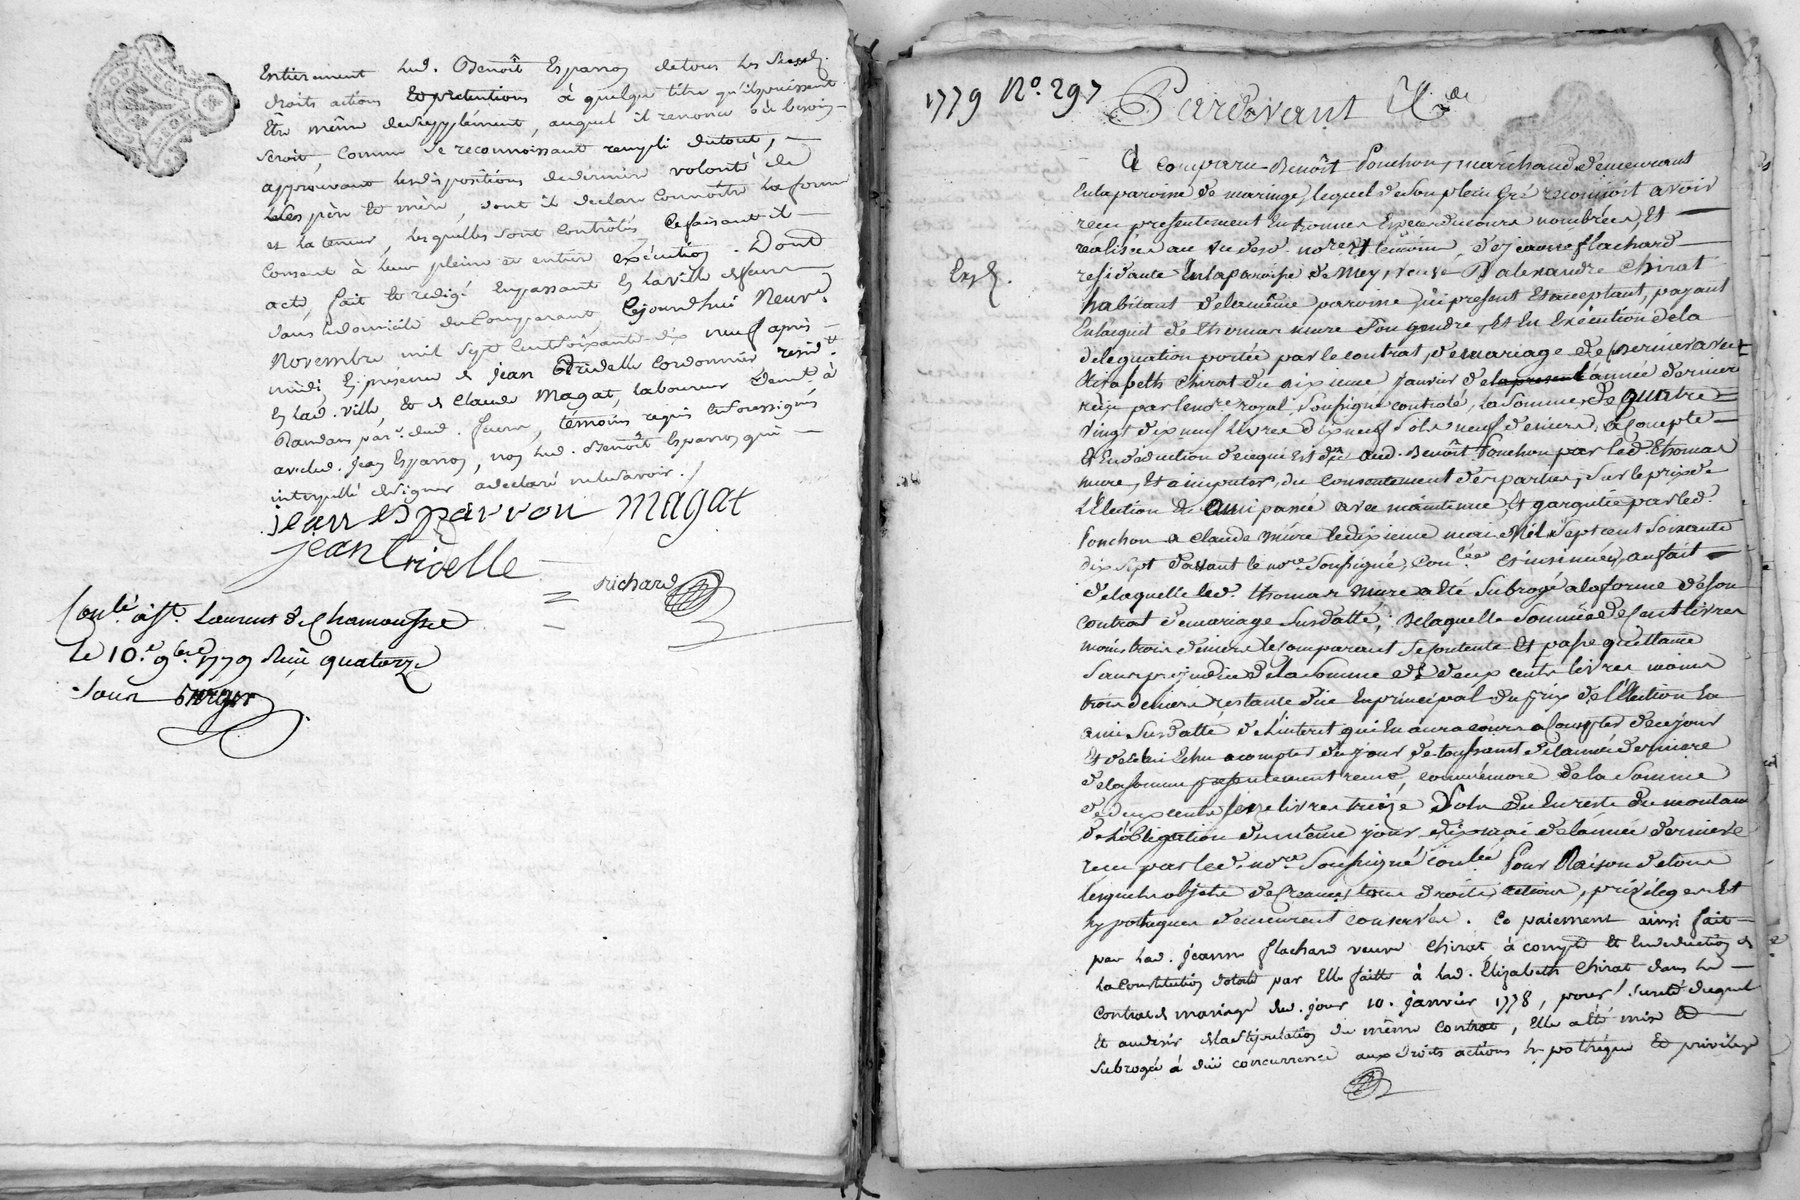 Entierement lud. Benoît Esparron detous les susd.
droits actions et prétentions à quelque titre qu'ils puissent
Etre même desupplément, auquel il renonce où besoin
seroit, comme se reconnoissant rempli dutout,
approuvant lesdispositions dedernière volonté de
ses père et mère, dont il declare connoître la forme
et la teneur, lesquelles sont contrôlés cefaisant il
consent à leur pleine et entière exécution. Dont
acte, fait et redigé enpassant en la ville de feurs
dans le domicile du Comparant, cejourdhui Neuve
Novembre mil sept cent soixante-dix neuf après
midi En présence de jean Tridelle cordonnier resid.
En lad. ville, et de Claude Magat, laboureur dem.t à
Randans par. dud. feurs, témoins requis et soussignés
avec led. jean Esparron, non led. Benoît Esparron qui
interpellé de signer a declaré nele savoir.
jean esparron magat
jean tridelle
richard
Con.lé à St. Laurent de Chamousset
le 10.e 9bre 1779 Reçu quatorze
sous
1779 N.o 297
Pardevant &.de
Exp.
A comparu Benoît Ponchon, marchand demeurant
enlaparoisse de maringe, lequel de son plein gré reconnoit avoir
reçu presentement En bonnes Especes ducours nombrées, Et
réalisées au vu desd. no.re Et temoins, de jeanne flachard
residante Enlaparoisse de Meys, veuve d'alexandre Chirat
habitant delamême paroisse, ici present Et acceptant, payant
En l'acquit de thomas mure son gendre, Et En Exécution dela
délégation portée par le contrat de mariage de ce dernier avec
Elisabeth Chirat du dixieme janvier de lapresent l'année derniere
reçu par lenore royal soussigné controlé, la somme de quatre
vingt dix neuf livres dix neuf sols neuf deniers, à compte
Et En déduction de ce qui Est dû aud. Benoît Ponchon par led. thomas
mure, Et à imputer, du consentement des parties, sur le prix de
l'Election en ami passé avec maintenue Et garantie par led.
Ponchon a Claude mure ledixieme mai Mil Sept cent soixante
dix sept devant le nore soussigné, con.lée Et insinuée, au fait
delaquelle led. thomas mure a été subrogé alaforme de son
contrat demariage susdatté, delaquelle somme de Cent livres
moins trois deniers le comparant se contente Et passe quittance
sans prejudice de la somme de deux cents livres moins
trois deniers restante due En principal du prix de l'Election En
ami susdatté de l'interet qui En aura cours a compter de ce jour
Et de celui Echu a compter du jour de toussaint de lannée derniere
de la somme presentement remise, comme encore de la somme
de deux cents seize livres treize sols due En reste du montant
de l'obligation du même jour dix mai de lannée derniere
reçu par led. nore soussigné con.lée Pour Raison de tous
lesquels objets de Creance, tous droits, actions, privileges Et
hypotheques demeurent conservés. Ce paiement ainsi fait
par lad. jeanne flachard veuve Chirat, à compte Et En deduction de
la Constitution dotale par Elle faitte à lad. Elizabeth Chirat dans le
contrat de mariage dud. jour 10. janvier 1778, pour sureté duquel
Et au desir de la stipulation du même contrat, Elle a été mise Et
subrogée à düe concurrence aux droits actions hypotheque Et privilege